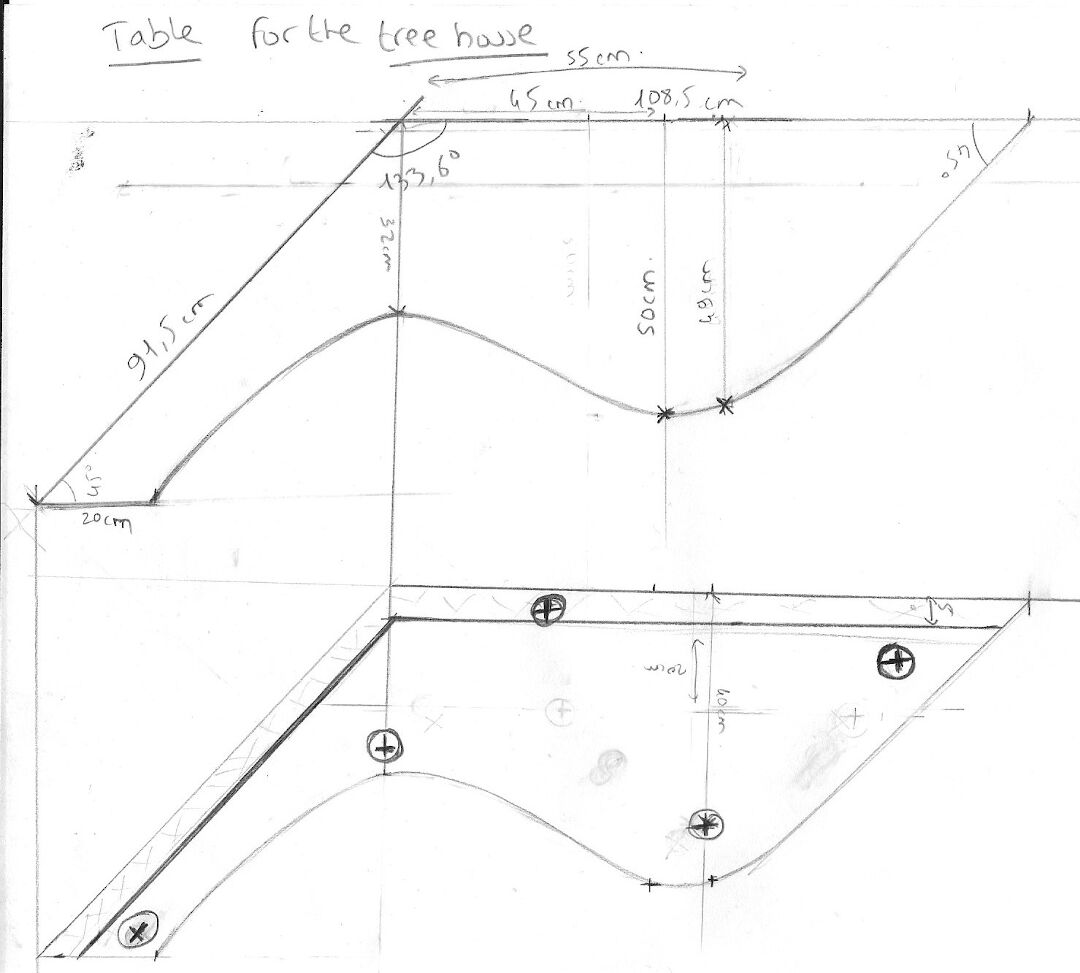 Table for the tree house
55cm.
45cm. 108,5 cm
133,6°
45°
32cm
50cm.
49cm
91,5cm
45°
20cm
5
20cm
40cm